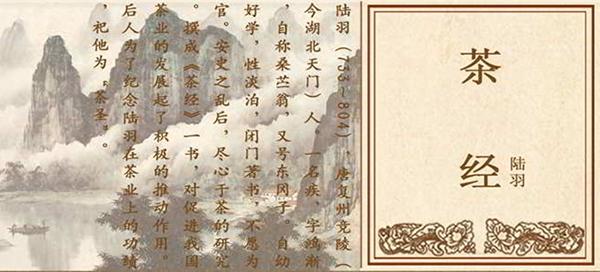 陆羽（733～804），唐复州竟陵（
今湖北天门）人。一名疾，字鸿渐
，自称桑苎翁，又号东冈子。自幼
好学，性淡泊，闭门著书，不愿为
官。安史之乱后，尽心于茶的研究
。撰成《茶经》一书，对促进我国
茶业的发展起了积极的推动作用。
后人为了纪念陆羽在茶业上的功绩
，祀他为“茶圣”。
茶经
陆羽